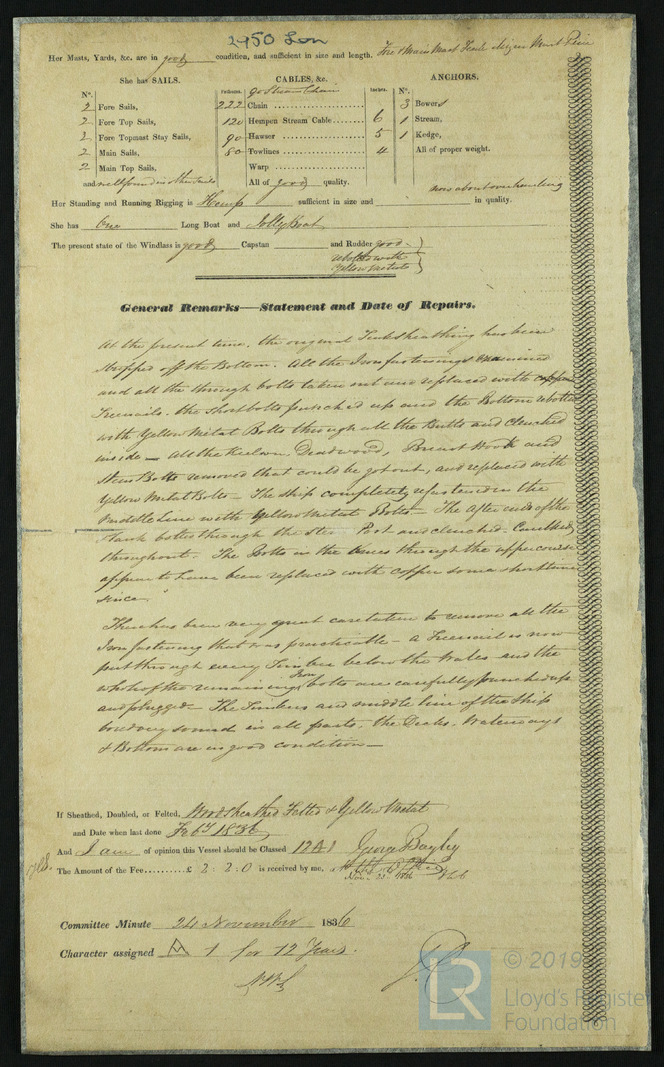 2950 Lon
Her Masts, Yards, &c. are in good condition, and sufficient in size and length. Fore & Main Mast Teak Mizen Mast Pine
She has SAILS. CABLES, &c. ANCHORS.
Nº. Fathoms. 90 Stream Chain Inches. Nº.
2 Fore Sails, 222 Chain 3 Bowers
2 Fore Top Sails, 120 Hempen Stream Cable 6 1 Stream,
2 Fore Topmast Stay Sails, 90 Hawser 5 1 Kedge,
2 Main Sails, 80 Towlines 4 All of proper weight.
2 Main Top Sails, Warp
and well found in other sails All of good quality. now about overhauling
Her Standing and Running Rigging is Hemp sufficient in size and in quality.
She has One Long Boat and Jolly Boat
The present state of the Windlass is good Capstan and Rudder good
with
Yellow Metal
General Remarks—Statement and Date of Repairs.
At the present time, the original Teak Sheathing has been
stripped off the Bottom. All the Iron fastenings examined
and all the through bolts taken out and replaced with copper
Treenails. the short bolts punched up and the Bottom bolted
with Yellow Metal Bolts through all the Butts and clenched
inside — All the Keelson, Deadwood, Breast Hook and
Stern Bolts removed that could be got out, and replaced with
Yellow Metal Bolts — The Ship completely refastened in the
middle Line with Yellow Metal Bolts — The After ends of the
Plank bolted through the Stern Post and clenched. Caulked
throughout. The Bolts in the through the upper course
appear to have been replaced with copper some short time
since.
There has been very great care taken to remove all the
Iron fastening that was practicable — a Treenail is now
put through every Timber below the Wales and the
whole of the remaining Iron bolts are carefully punched up
and plugged — The Timbers and middle line of the Ship
bored very sound in all parts, the Decks, Waterways
& Bottom are in good condition —
If Sheathed, Doubled, or Felted, Wood sheathed Felted & Yellow Metal
and Date when last done Feby 1836
And I am of opinion this Vessel should be Classed 12 A 1 George Bayley
The Amount of the Fee £ 2:2:0 is received by me,
Committee Minute 24 November 1836
Character assigned A 1 for 12 Years.
© 2019
LR
Lloyd's Register
Foundation